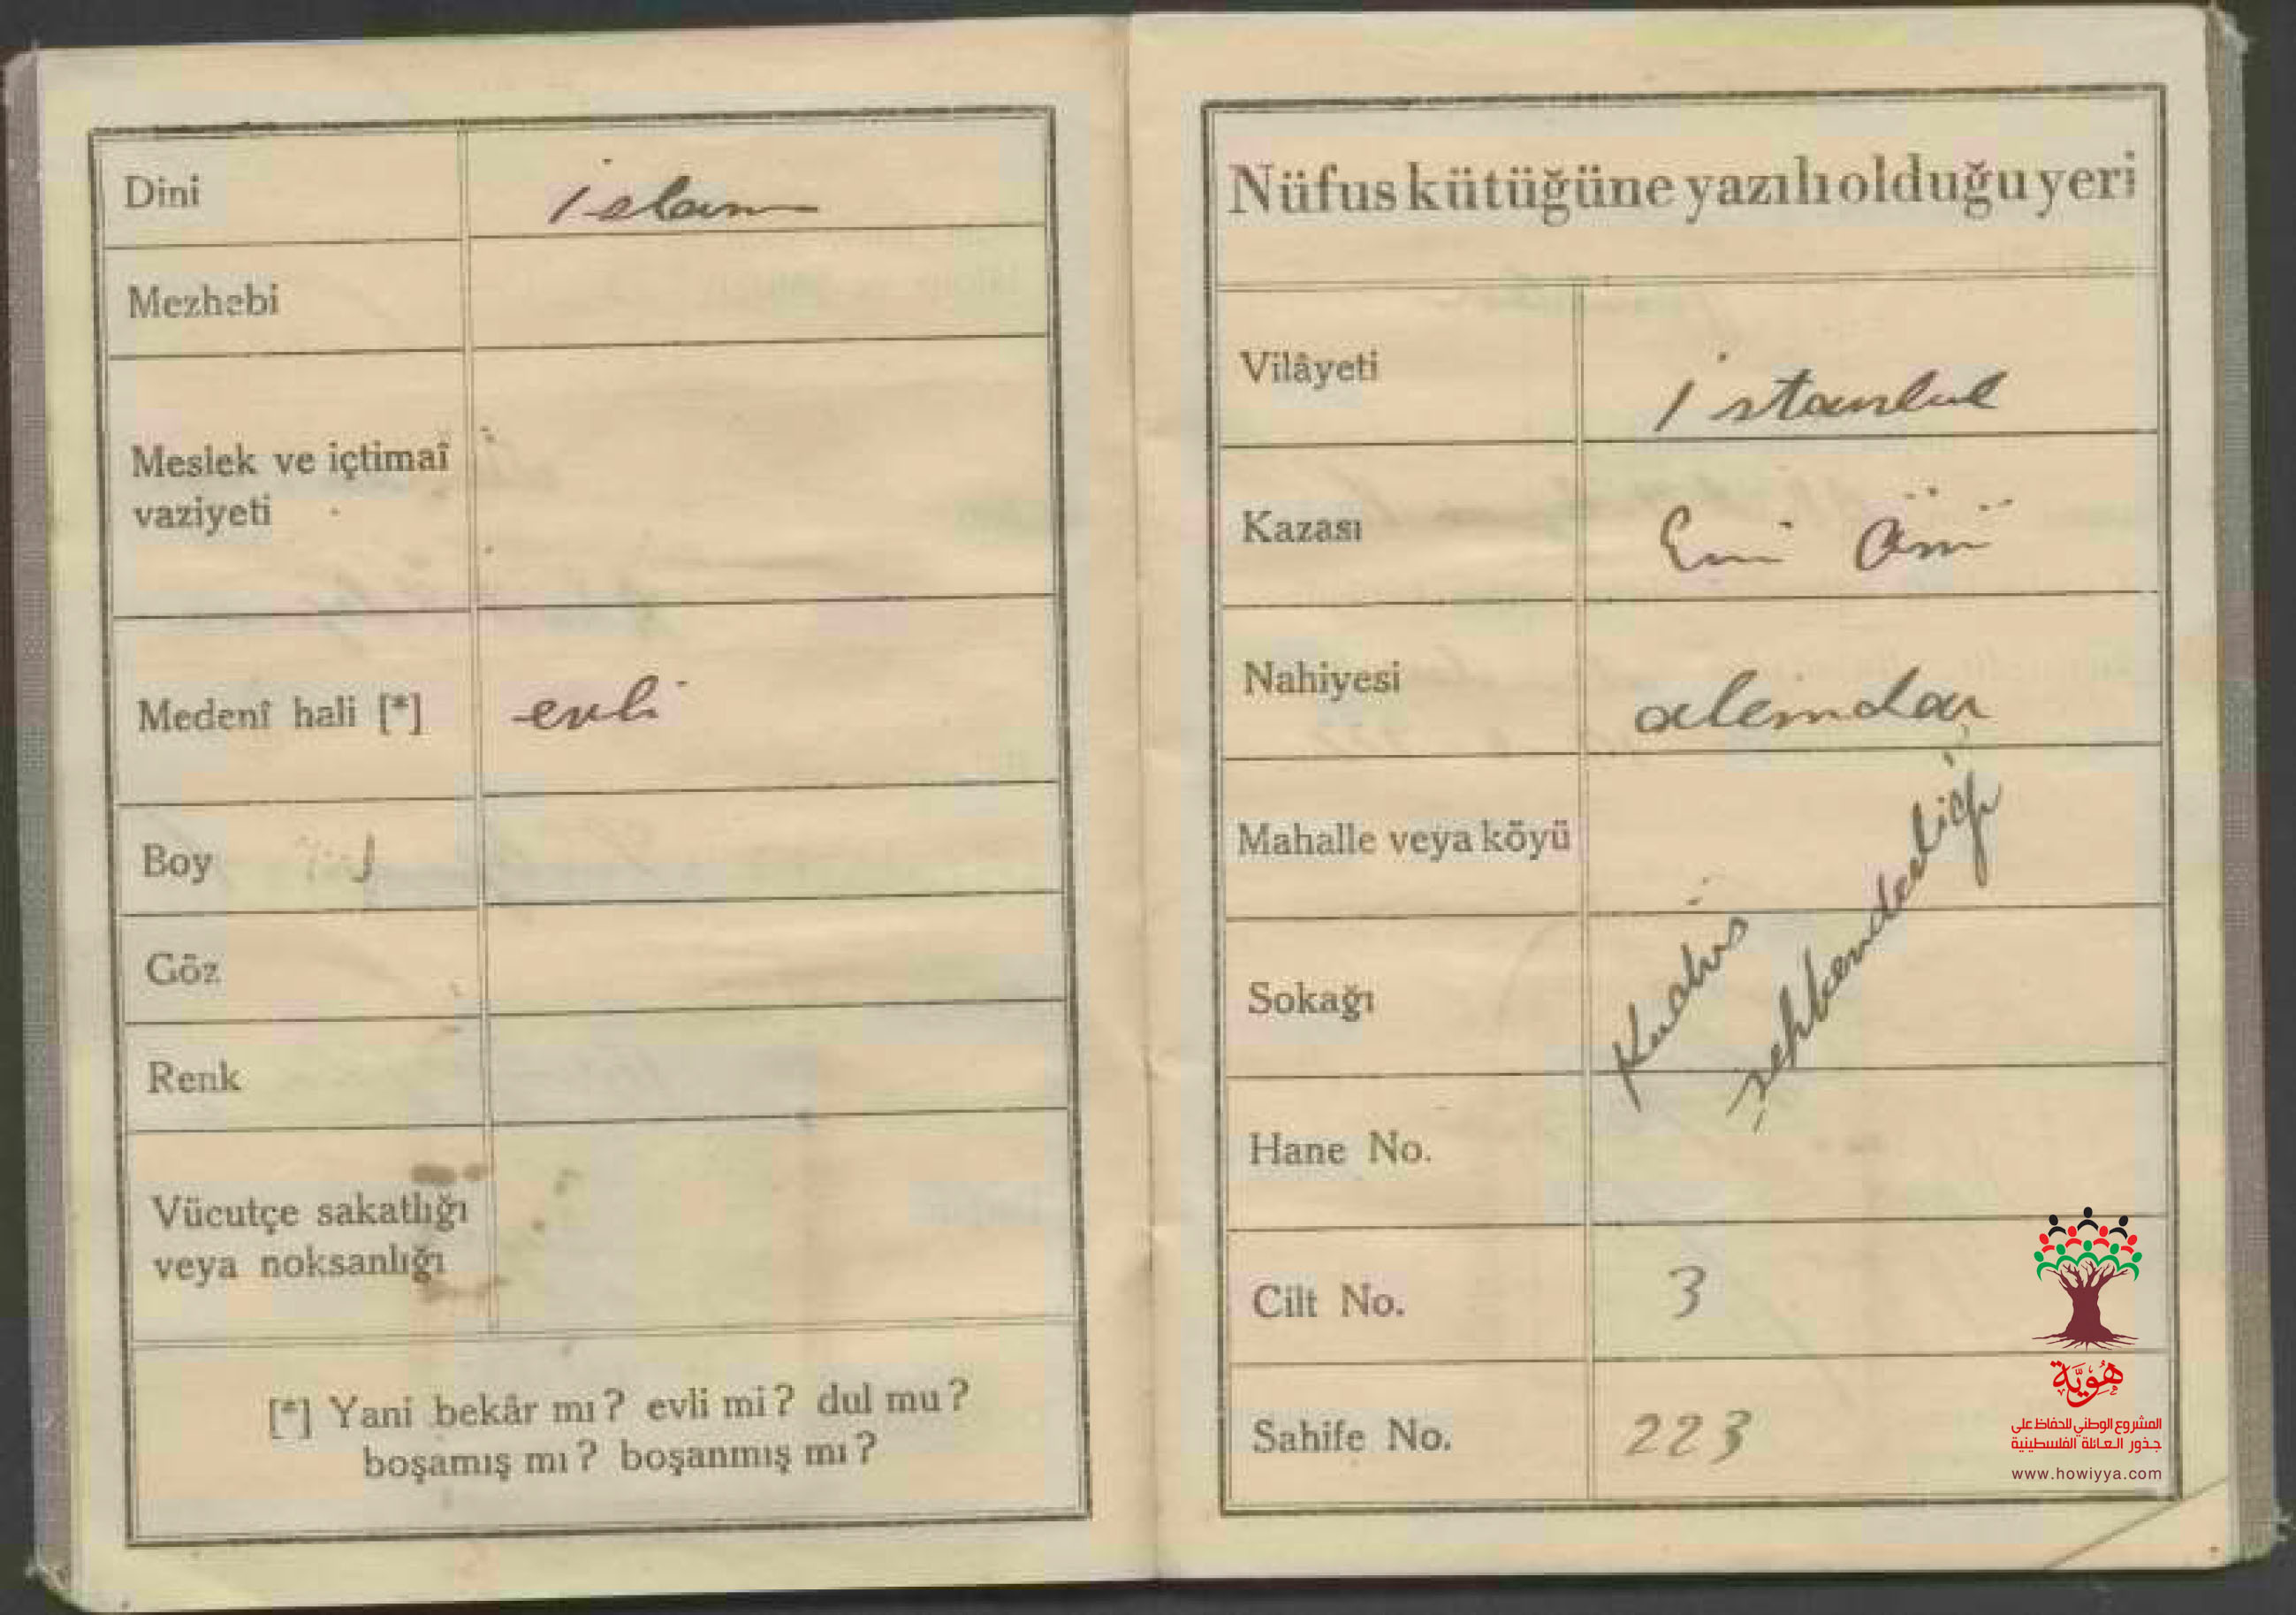 Dini
islam
Mezhebi
Meslek ve içtimaî
vaziyeti
Medenî hali [*]
evli
Boy
Göz
Renk
Vücutçe sakatlığı
veya noksanlığı
[*] Yani bekâr mı? evli mi? dul mu?
boşamış mı? boşanmış mı?
Nüfus kütüğüne yazılı olduğu yeri
Vilâyeti
istanbul
Kazası
Emi Önü
Nahiyesi
alemdar
Mahalle veya köyü
Sokağı
Kudüs
şehbenderliği
Hane No.
Cilt No.
3
Sahife No.
223
هُوِيَّة
المشروع الوطني للحفاظ على
جذور العائلة الفلسطينية
www.howiyya.com